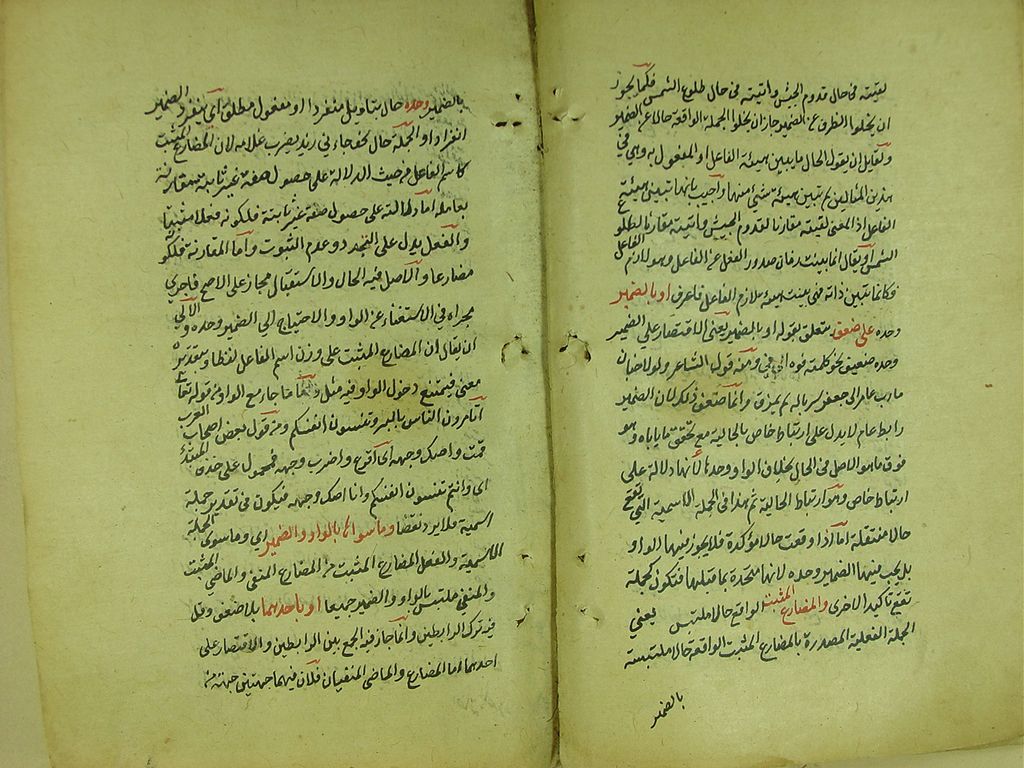 لقيته في حال قدوم الجيش واتيته في حال طلوع الشمس فكما يجوز
ان يخلوا الظرف عن الضمير جاز ان يخلوا الجملة الواقعة حالا عن الضمير
ولقايل ان يقول الحال ما يبين هيئة الفاعل او المفعول به وهي في
هذين المثالين لم تبين هيئة شيئ منهما واجيب بانهما تبين هيئة
الفاعل اذ المعنى لقيته مقارنا لقدوم الجيش واتيته مقارنا لطلوع
الشمس او يقال انما بينت زمان صدور الفعل عن الفاعل وهو لازم الفاعل
فكانما تبين ذاته فهي بينت هيئة ملازم الفاعل فاعرف او بالضمير
وحده على ضعف متعلق بقوله او بالضمير يعني الاقتصار على الضمير
وحده ضعيف نحو كلمته فوه الى في ومنه قول الشاعر ولولا جنان
ما اب عامر الى جعفر سرباله لم يمزق وانما ضعف ذلك لان الضمير
رابط عام لا يدل على ارتباط خاص بالحالية مع تحقق ما ياباه وهو
فوق ما هو الاصل في الحال بخلاف الواو وحدها لانها دلالة على
ارتباط خاص وهو ارتباط الحالية ثم هذا في الجملة الاسمية التي تقع
حالا منتقلة اما اذا وقعت حالا مؤكدة فلا يجوز فيها الواو
بل يجب فيها الضمير وحده لانها متحدة بما قبلها فتكون كجملة
تقع تاكيد الاخرى والمضارع المثبت الواقع حالا ملتبس يعني
الجملة الفعلية المصدرة بالمضارع المثبت الواقعة حالا ملتبسة
بالضمير
بالضمير وحده حال بتاويل منفردا او مفعول مطلق اي ينفرد الضمير
انفرادا والجملة حال كـ جاءني زيد يضرب غلامه لان المضارع المثبت
كاسم الفاعل من حيث الدلالة على حصول صفة غير ثابتة مقارنة
بعامله اما دلالته على حصول صفة غير ثابتة فلكونه فعلا مثبتا
والفعل يدل على التجدد وعدم الثبوت واما المقارنة فلكونه
مضارعا والاصل فيه الحال والاستقبال مجاز على الاصح فاجري
مجراه في الاستغناء عن الواو والاحتياج الى الضمير وحده والاولى
ان يقال ان المضارع المثبت على وزن اسم الفاعل لفظا وبتقديره
معنى فيمتنع دخول الواو فيه مثله واما ما جاء مع الواو في قوله تعالى
اتامرون الناس بالبر وتنسون انفسكم ومن قول بعض اصحاب العرب
قمت واصك وجهه اي اقرع واضرب وجهه فمحمول على حذف المبتدأ
اي وانتم تنسون انفسكم وانا اصك وجهه فيكون في تقدير جملة
اسمية ولا يرد نقضا وما سواهما بالواو والضمير اي وما سوى الجملة
الاسمية والفعل المضارع المثبت من المضارع المنفي والماضي المثبت
والمنفي ملتبس بالواو والضمير جميعا او باحدهما بلا ضعف وقيل
فيه ترك الرابطين وانما جاز فيه الجمع بين الرابطين والاقتصار على
احدهما اما المضارع والماضي المنفيان فلان فيهما جهتين جهة من